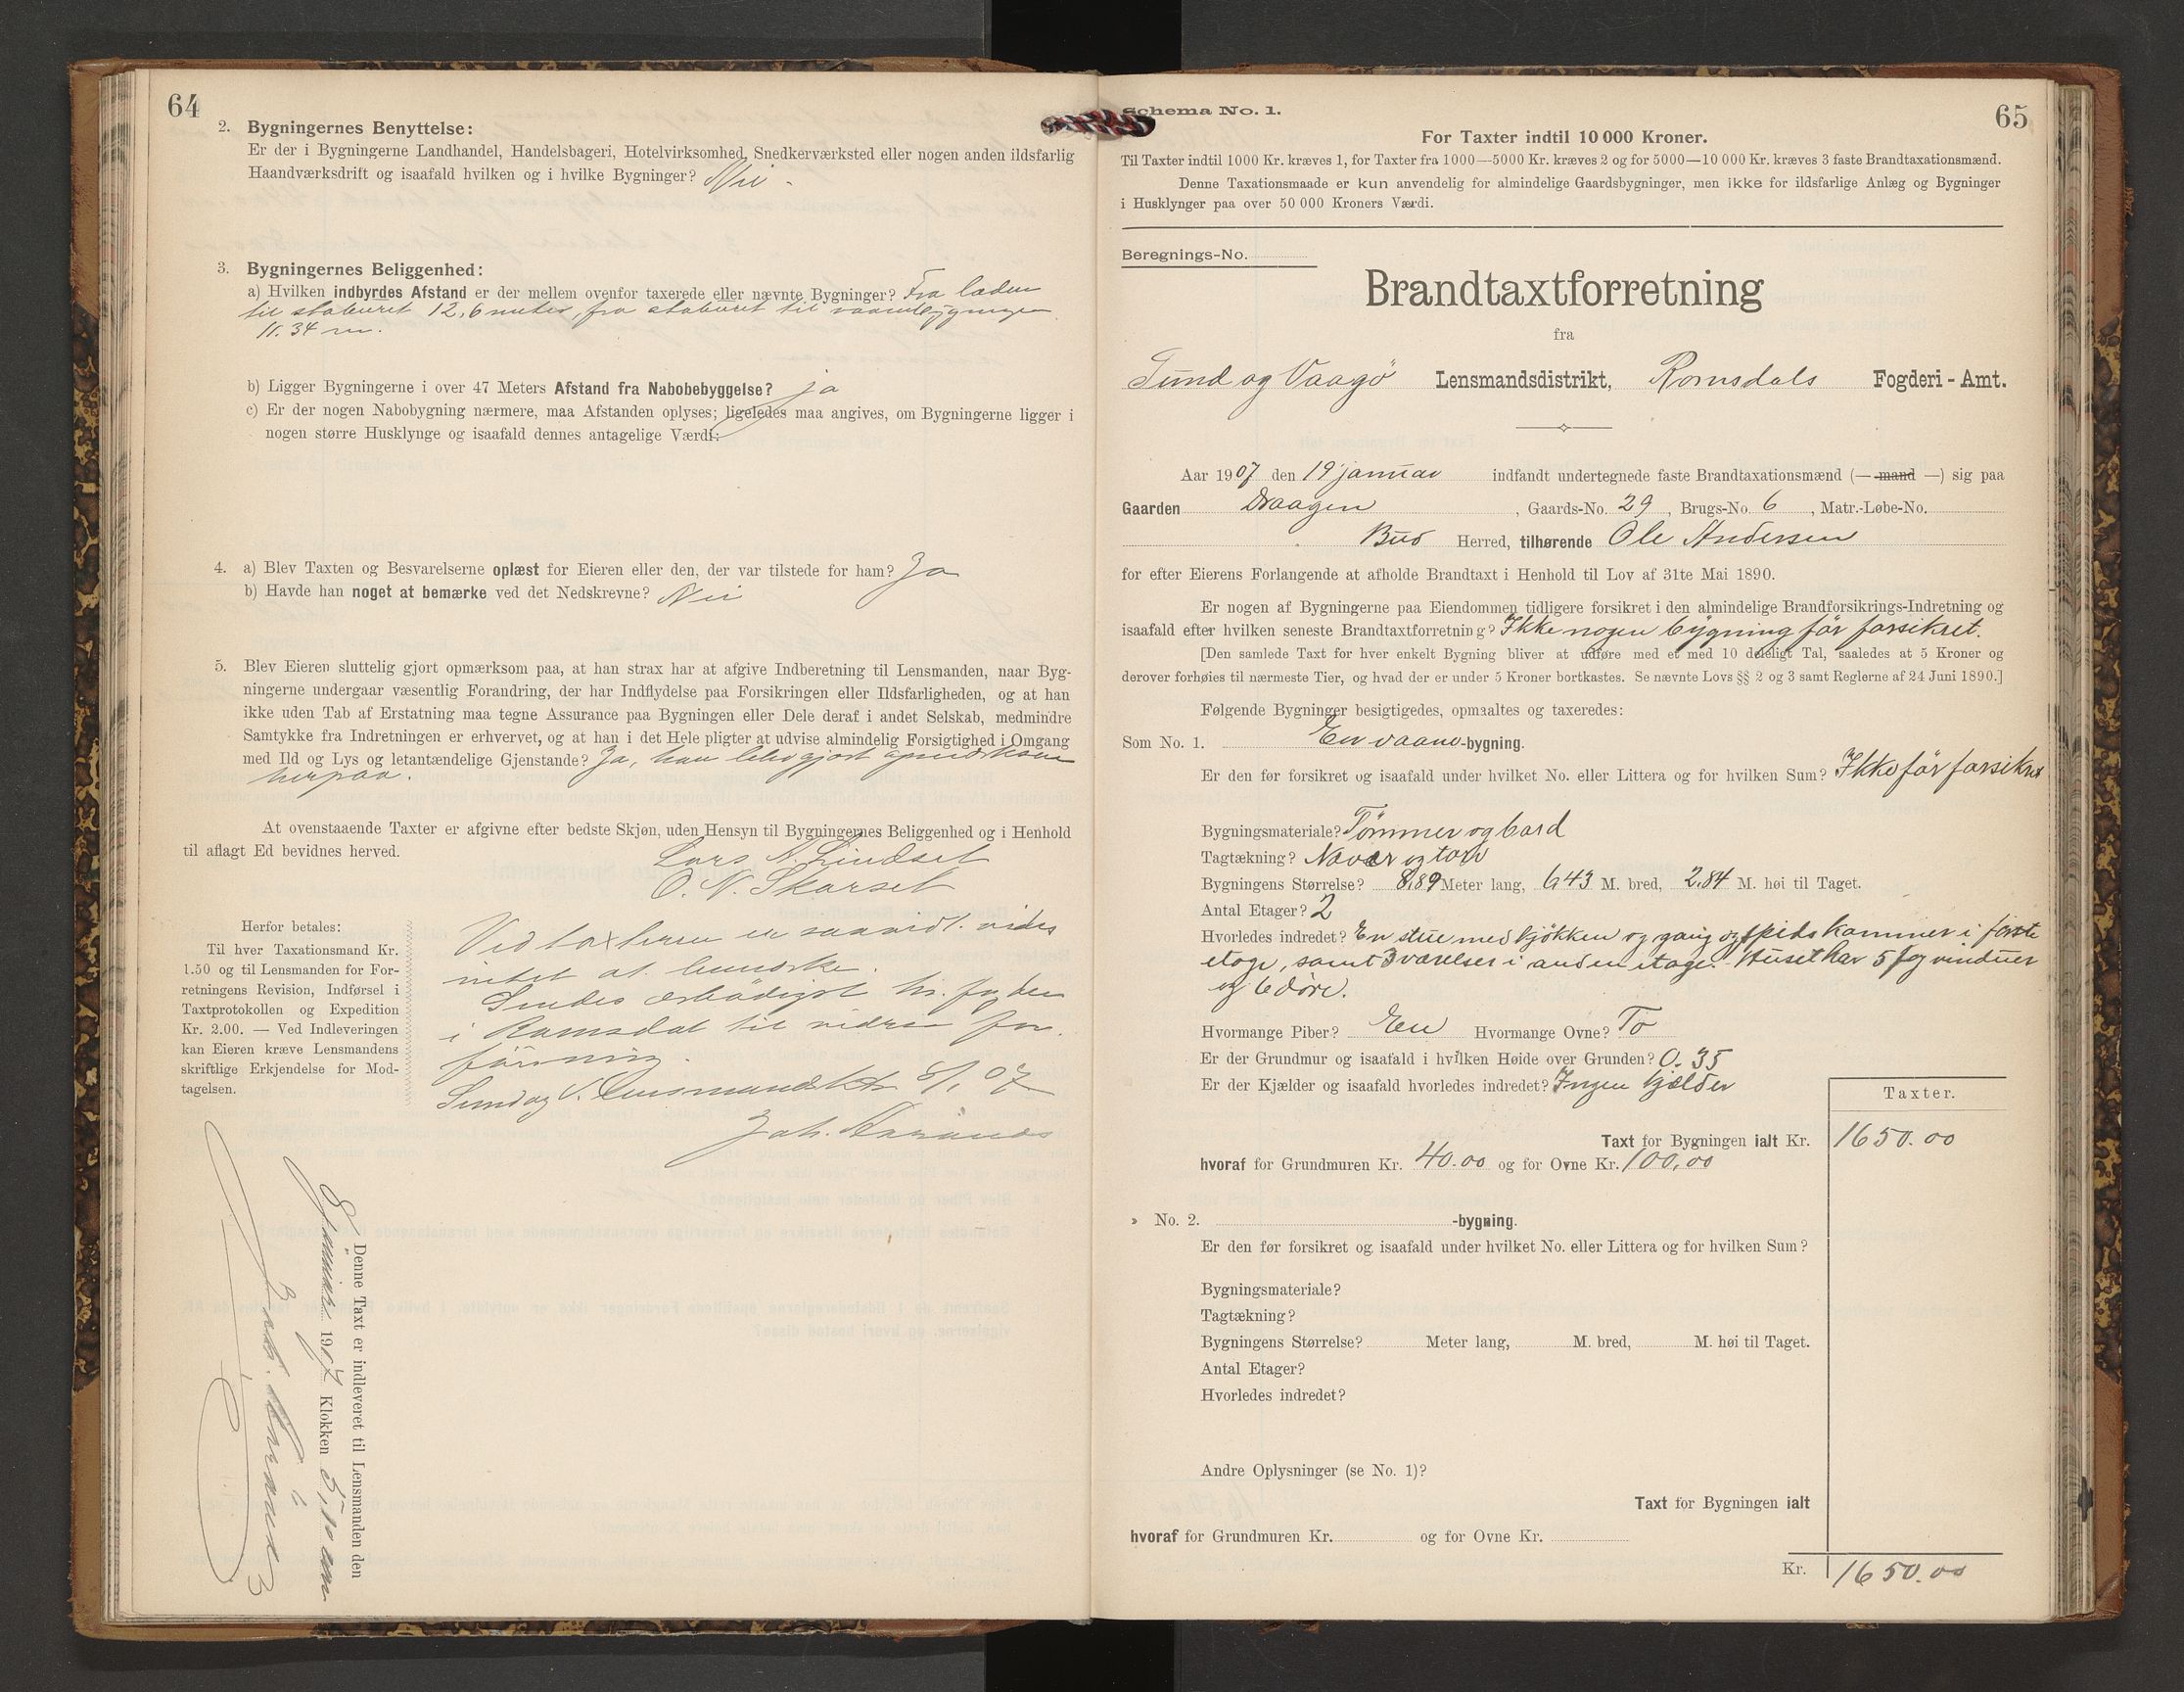 64
2. Bygningernes Benyttelse:
Er der i Bygningerne Landhandel, Handelsbageri, Hotelvirksomhed, Snedkerværksted eller nogen anden ildsfarlig
Haandværksdrift og isaafald hvilken og i hvilke Bygninger? Nei -
3. Bygningernes Beliggenhed:
a) Hvilken indbyrdes Afstand er der mellem ovenfor taxerede eller nævnte Bygninger? Fra laden
til staburet 12,6 meter, fra staburet til vaanebygningen
11.34 m.
b) Ligger Bygningerne i over 47 Meters Afstand fra Nabobebyggelse? ja
c) Er der nogen Nabobygning nærmere, maa Afstanden oplyses; ligeledes maa angives, om Bygningerne ligger i
nogen større Husklynge og isaafald dennes antagelige Værdi:
4. a) Blev Taxten og Besvarelserne oplæst for Eieren eller den, der var tilstede for ham? Ja
b) Havde han noget at bemærke ved det Nedskrevne? Nei
5. Blev Eieren sluttelig gjort opmærksom paa, at han strax har at afgive Indberetning til Lensmanden, naar Byg-
ningerne undergaar væsentlig Forandring, der har Indflydelse paa Forsikringen eller Ildsfarligheden, og at han
ikke uden Tab af Erstatning maa tegne Assurance paa Bygningen eller Dele deraf i andet Selskab, medmindre
Samtykke fra Indretningen er erhvervet, og at han i det Hele pligter at udvise almindelig Forsigtighed i Omgang
med Ild og Lys og letantændelige Gjenstande? Ja, han blev gjort opmerksom
herpaa.
At ovenstaaende Taxter er afgivne efter bedste Skjøn, uden Hensyn til Bygningernes Beliggenhed og i Henhold
til aflagt Ed bevidnes herved.
Lars N. Lindset
O. N. Skarset
Herfor betales:
Til hver Taxationsmand Kr.
1.50 og til Lensmanden for For-
retningens Revision, Indførsel i
Taxtprotokollen og Expedition
Kr. 2.00. — Ved Indleveringen
kan Eieren kræve Lensmandens
skriftlige Erkjendelse for Mod-
tagelsen.
Ved taxteren er saavidt vides
intet at bemærke.
Sendes ærbödigst hr. fogden
i Romsdal til videre for-
föining.
Sund og V. Lensmandsktr 8/1 07
Joh.
Denne Taxt er indleveret til Lensmanden den
8 januar 1907 Klokken
Joh.
65
Schema No. 1.
For Taxter indtil 10 000 Kroner.
Til Taxter indtil 1000 Kr. kræves 1, for Taxter fra 1000—5000 Kr. kræves 2 og for 5000—10 000 Kr. kræves 3 faste Brandtaxationsmænd.
Denne Taxationsmaade er kun anvendelig for almindelige Gaardsbygninger, men ikke for ildsfarlige Anlæg og Bygninger
i Husklynger paa over 50 000 Kroners Værdi.
Beregnings-No.
Brandtaxtforretning
fra
Sund og Vaagö Lensmandsdistrikt, Romsdals Fogderi - Amt.
Aar 1907 den 19 januar indfandt undertegnede faste Brandtaxationsmænd (— mand —) sig paa
Gaarden Draagen, Gaards-No. 29, Brugs-No. 6, Matr.-Løbe-No.
Bud Herred, tilhørende Ole Andersen
for efter Eierens Forlangende at afholde Brandtaxt i Henhold til Lov af 31te Mai 1890.
Er nogen af Bygningerne paa Eiendommen tidligere forsikret i den almindelige Brandforsikrings-Indretning og
isaafald efter hvilken seneste Brandtaxtforretning? Ikke nogen bygning för forsikret.
[Den samlede Taxt for hver enkelt Bygning bliver at udføre med et med 10 deleligt Tal, saaledes at 5 Kroner og
derover forhøies til nærmeste Tier, og hvad der er under 5 Kroner bortkastes. Se nævnte Lovs §§ 2 og 3 samt Reglerne af 24 Juni 1890.]
Følgende Bygninger besigtigedes, opmaaltes og taxeredes:
Som No. 1. En vaane-bygning.
Er den før forsikret og isaafald under hvilket No. eller Littera og for hvilken Sum? Ikke för forsikret
Bygningsmateriale? Tömmer og bord
Tagtækning? Næver og torv
Bygningens Størrelse? 8,89 Meter lang, 6,43 M. bred, 2.84 M. høi til Taget.
Antal Etager? 2
Hvorledes indretet? En stue med kjökken og gang og spiskammer i förste
etage, samt 3 værelser i anden etage. - Huset har 5 fag vinduer
og 6 döre.
Hvormange Piber? En Hvormange Ovne? To
Er der Grundmur og isaafald i hvilken Høide over Grunden? 0.35
Er der Kjælder og isaafald hvorledes indredet? Ingen kjælder
Taxter.
Taxt for Bygningen ialt Kr. 1650.00
hvoraf for Grundmuren Kr. 40.00 og for Ovne Kr. 100,00
» No. 2. -bygning.
Er den før forsikret og isaafald under hvilket No. eller Littera og for hvilken Sum?
Bygningsmateriale?
Tagtækning?
Bygningens Størrelse? Meter lang, M. bred, M. høi til Taget.
Antal Etager?
Hvorledes indredet?
Andre Oplysninger (se No. 1)?
Taxt for Bygningen ialt
hvoraf for Grundmuren Kr. og for Ovne Kr.
Kr. 1650.00